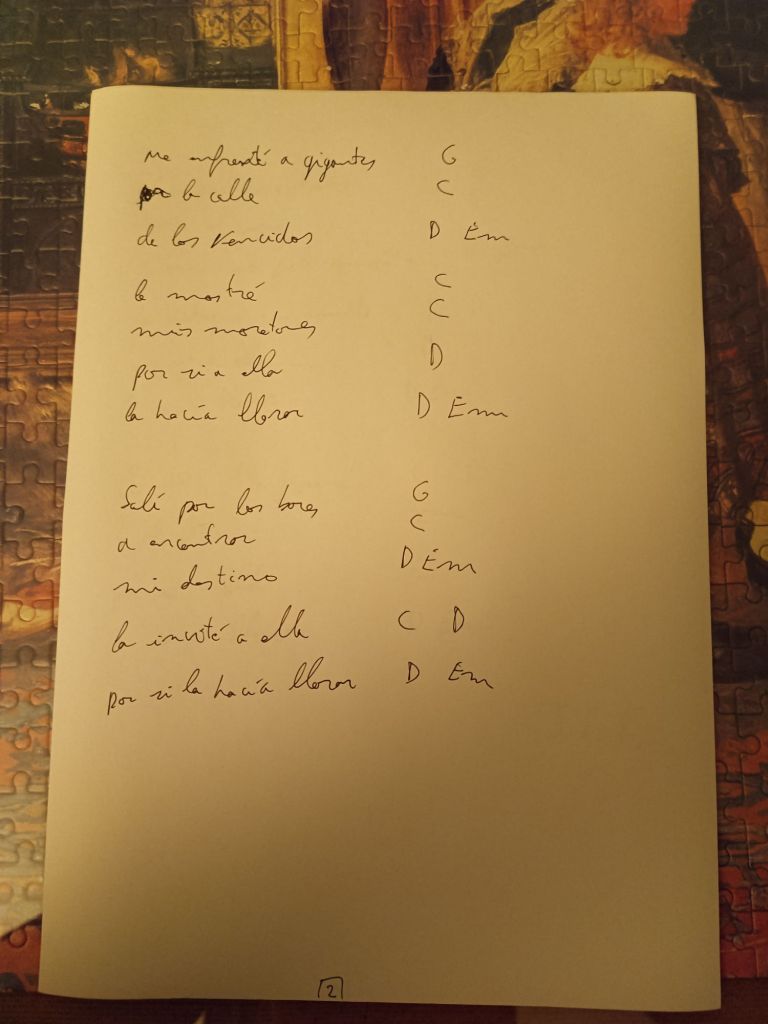 Me enfrenté a gigantes G
la calle C
de los vencidos D Em
le mostré C
mis moratones C
por si a ella D
la hacía llorar D Em
Salí por los bares G
a encontrar C
mi destino D Em
la invité a ella C D
por si la hacía llorar D Em
2